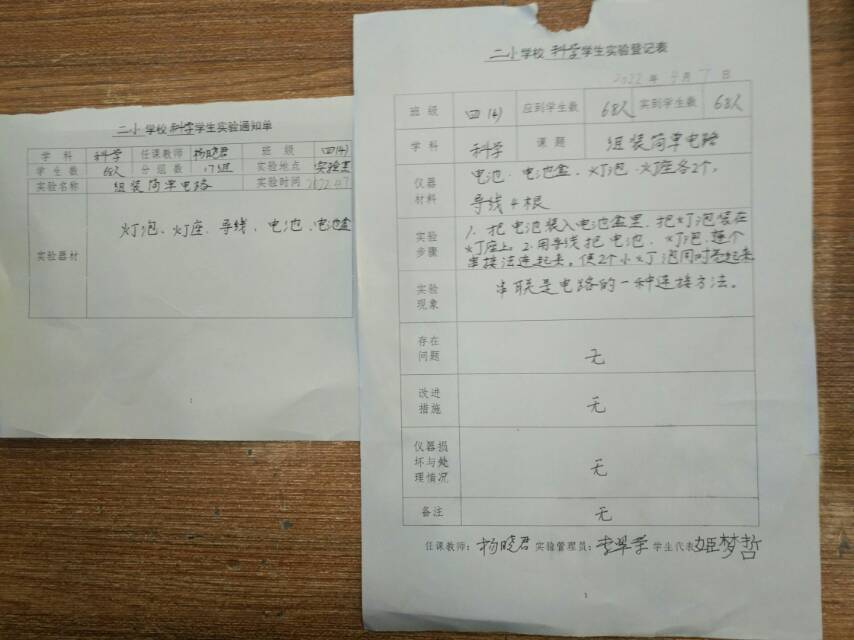 二小学校科学学生实验通知单
学科 科学 任课教师 杨晓君 班级 四(4)
学生数 68人 分组数 17组 实验地点 实验室
实验名称 组装简单电路 实验时间 2022.4.7
实验器材 灯泡、灯座、导线、电池、电池盒
1
二小学校科学学生实验登记表
2022年4月7日
班级 四(4) 应到学生数 68人 实到学生数 68人
学科 科学 课题 组装简单电路
仪器材料 电池、电池盒、灯泡、灯座各2个,
导线4根
实验步骤 1、把电池装入电池盒里,把灯泡装在
灯座上。2.用导线把电池、灯泡、逐个
串接法连起来。使2个小灯泡同时亮起来
实验现象 串联是电路的一种连接方法。
存在问题 无
改进措施 无
仪器损坏与处理情况 无
备注 无
任课教师:杨晓君 实验管理员:李 学生代表 姬梦哲
1